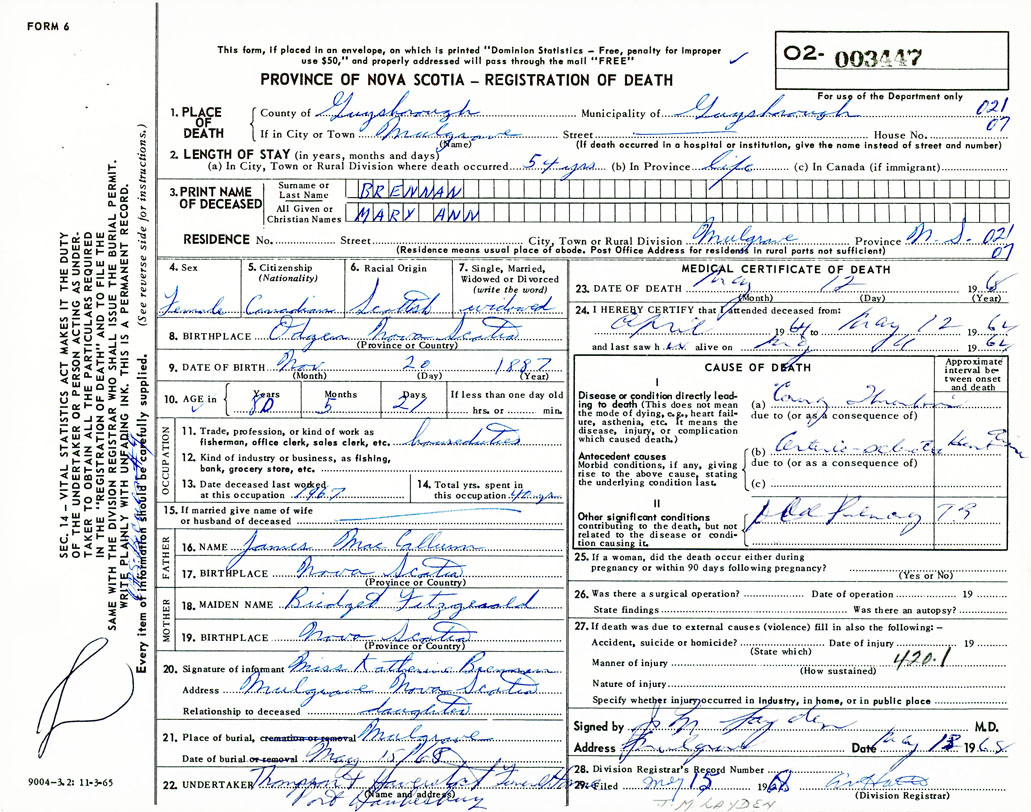 FORM 6
This form, if placed in an envelope, on which is printed "Dominion Statistics – Free, penalty for improper
use $50," and properly addressed will pass through the mail "FREE"
PROVINCE OF NOVA SCOTIA – REGISTRATION OF DEATH
02- 003447
For use of the Department only
021
07
1. PLACE OF DEATH
County of Guysborough Municipality of Guysborough
If in City or Town Mulgrave Street House No.
(Name) (If death occurred in a hospital or institution, give the name instead of street and number)
2. LENGTH OF STAY (in years, months and days)
(a) In City, Town or Rural Division where death occurred 54 yrs. (b) In Province life (c) In Canada (if immigrant)
3. PRINT NAME OF DECEASED
Surname or Last Name BRENNAN
All Given or Christian Names MARY ANN
RESIDENCE No. Street City, Town or Rural Division Mulgrave Province N. S. 021
07
(Residence means usual place of abode. Post Office Address for residents in rural parts not sufficient)
4. Sex Female
5. Citizenship (Nationality) Canadian
6. Racial Origin Scottish
7. Single, Married, Widowed or Divorced (write the word) widowed
8. BIRTHPLACE Nova Scotia
(Province or Country)
9. DATE OF BIRTH Nov. 20 1887
(Month) (Day) (Year)
10. AGE in Years 80 Months 5 Days 21 If less than one day old hrs. or min.
OCCUPATION
11. Trade, profession, or kind of work as fisherman, office clerk, sales clerk, etc. houseduties
12. Kind of industry or business, as fishing, bank, grocery store, etc.
13. Date deceased last worked at this occupation 1967
14. Total yrs. spent in this occupation 40 yrs
15. If married give name of wife or husband of deceased
FATHER
16. NAME James MacCallum
17. BIRTHPLACE Nova Scotia
(Province or Country)
MOTHER
18. MAIDEN NAME Bridget Fitzgerald
19. BIRTHPLACE Nova Scotia
(Province or Country)
20. Signature of informant Miss Katherine Brennan
Address Mulgrave Nova Scotia
Relationship to deceased daughter
21. Place of burial, cremation or removal Mulgrave
Date of burial or removal May 15/68
22. UNDERTAKER Funeral Home
(Name and address)
Port Hawkesbury
MEDICAL CERTIFICATE OF DEATH
23. DATE OF DEATH May 12 1968
(Month) (Day) (Year)
24. I HEREBY CERTIFY that I attended deceased from:
April 1964 to May 12 1964
and last saw her alive on May 11 1964
CAUSE OF DEATH
Approximate interval between onset and death
I
Disease or condition directly leading to death (This does not mean the mode of dying, e.g., heart failure, asthenia, etc. It means the disease, injury, or complication which caused death.)
(a)
due to (or as a consequence of)
Antecedent causes
Morbid conditions, if any, giving rise to the above cause, stating the underlying condition last.
(b)
due to (or as a consequence of)
(c)
II
Other significant conditions contributing to the death, but not related to the disease or condition causing it.
Old
25. If a woman, did the death occur either during pregnancy or within 90 days following pregnancy?
(Yes or No)
26. Was there a surgical operation? Date of operation 19
State findings Was there an autopsy?
27. If death was due to external causes (violence) fill in also the following: –
Accident, suicide or homicide? Date of injury 19
(State which)
Manner of injury 420.1
(How sustained)
Nature of injury
Specify whether injury occurred in industry, in home, or in public place
Signed by J M Layden M.D.
Address Mulgrave Date May 13 1968
28. Division Registrar's Record Number
29. Filed May 15 1968
(Division Registrar)
J. M LAYDEN
SEC. 14 – VITAL STATISTICS ACT MAKES IT THE DUTY
OF THE UNDERTAKER OR PERSON ACTING AS UNDER-
TAKER TO OBTAIN ALL THE PARTICULARS REQUIRED
IN THE "REGISTRATION OF DEATH" AND TO FILE THE
SAME WITH THE DIVISION REGISTRAR WHO SHALL ISSUE THE BURIAL PERMIT.
WRITE PLAINLY WITH UNFADING INK. THIS IS A PERMANENT RECORD.
Every item of information should be carefully supplied. (See reverse side for instructions.)
9004-3.2: 11-3-65